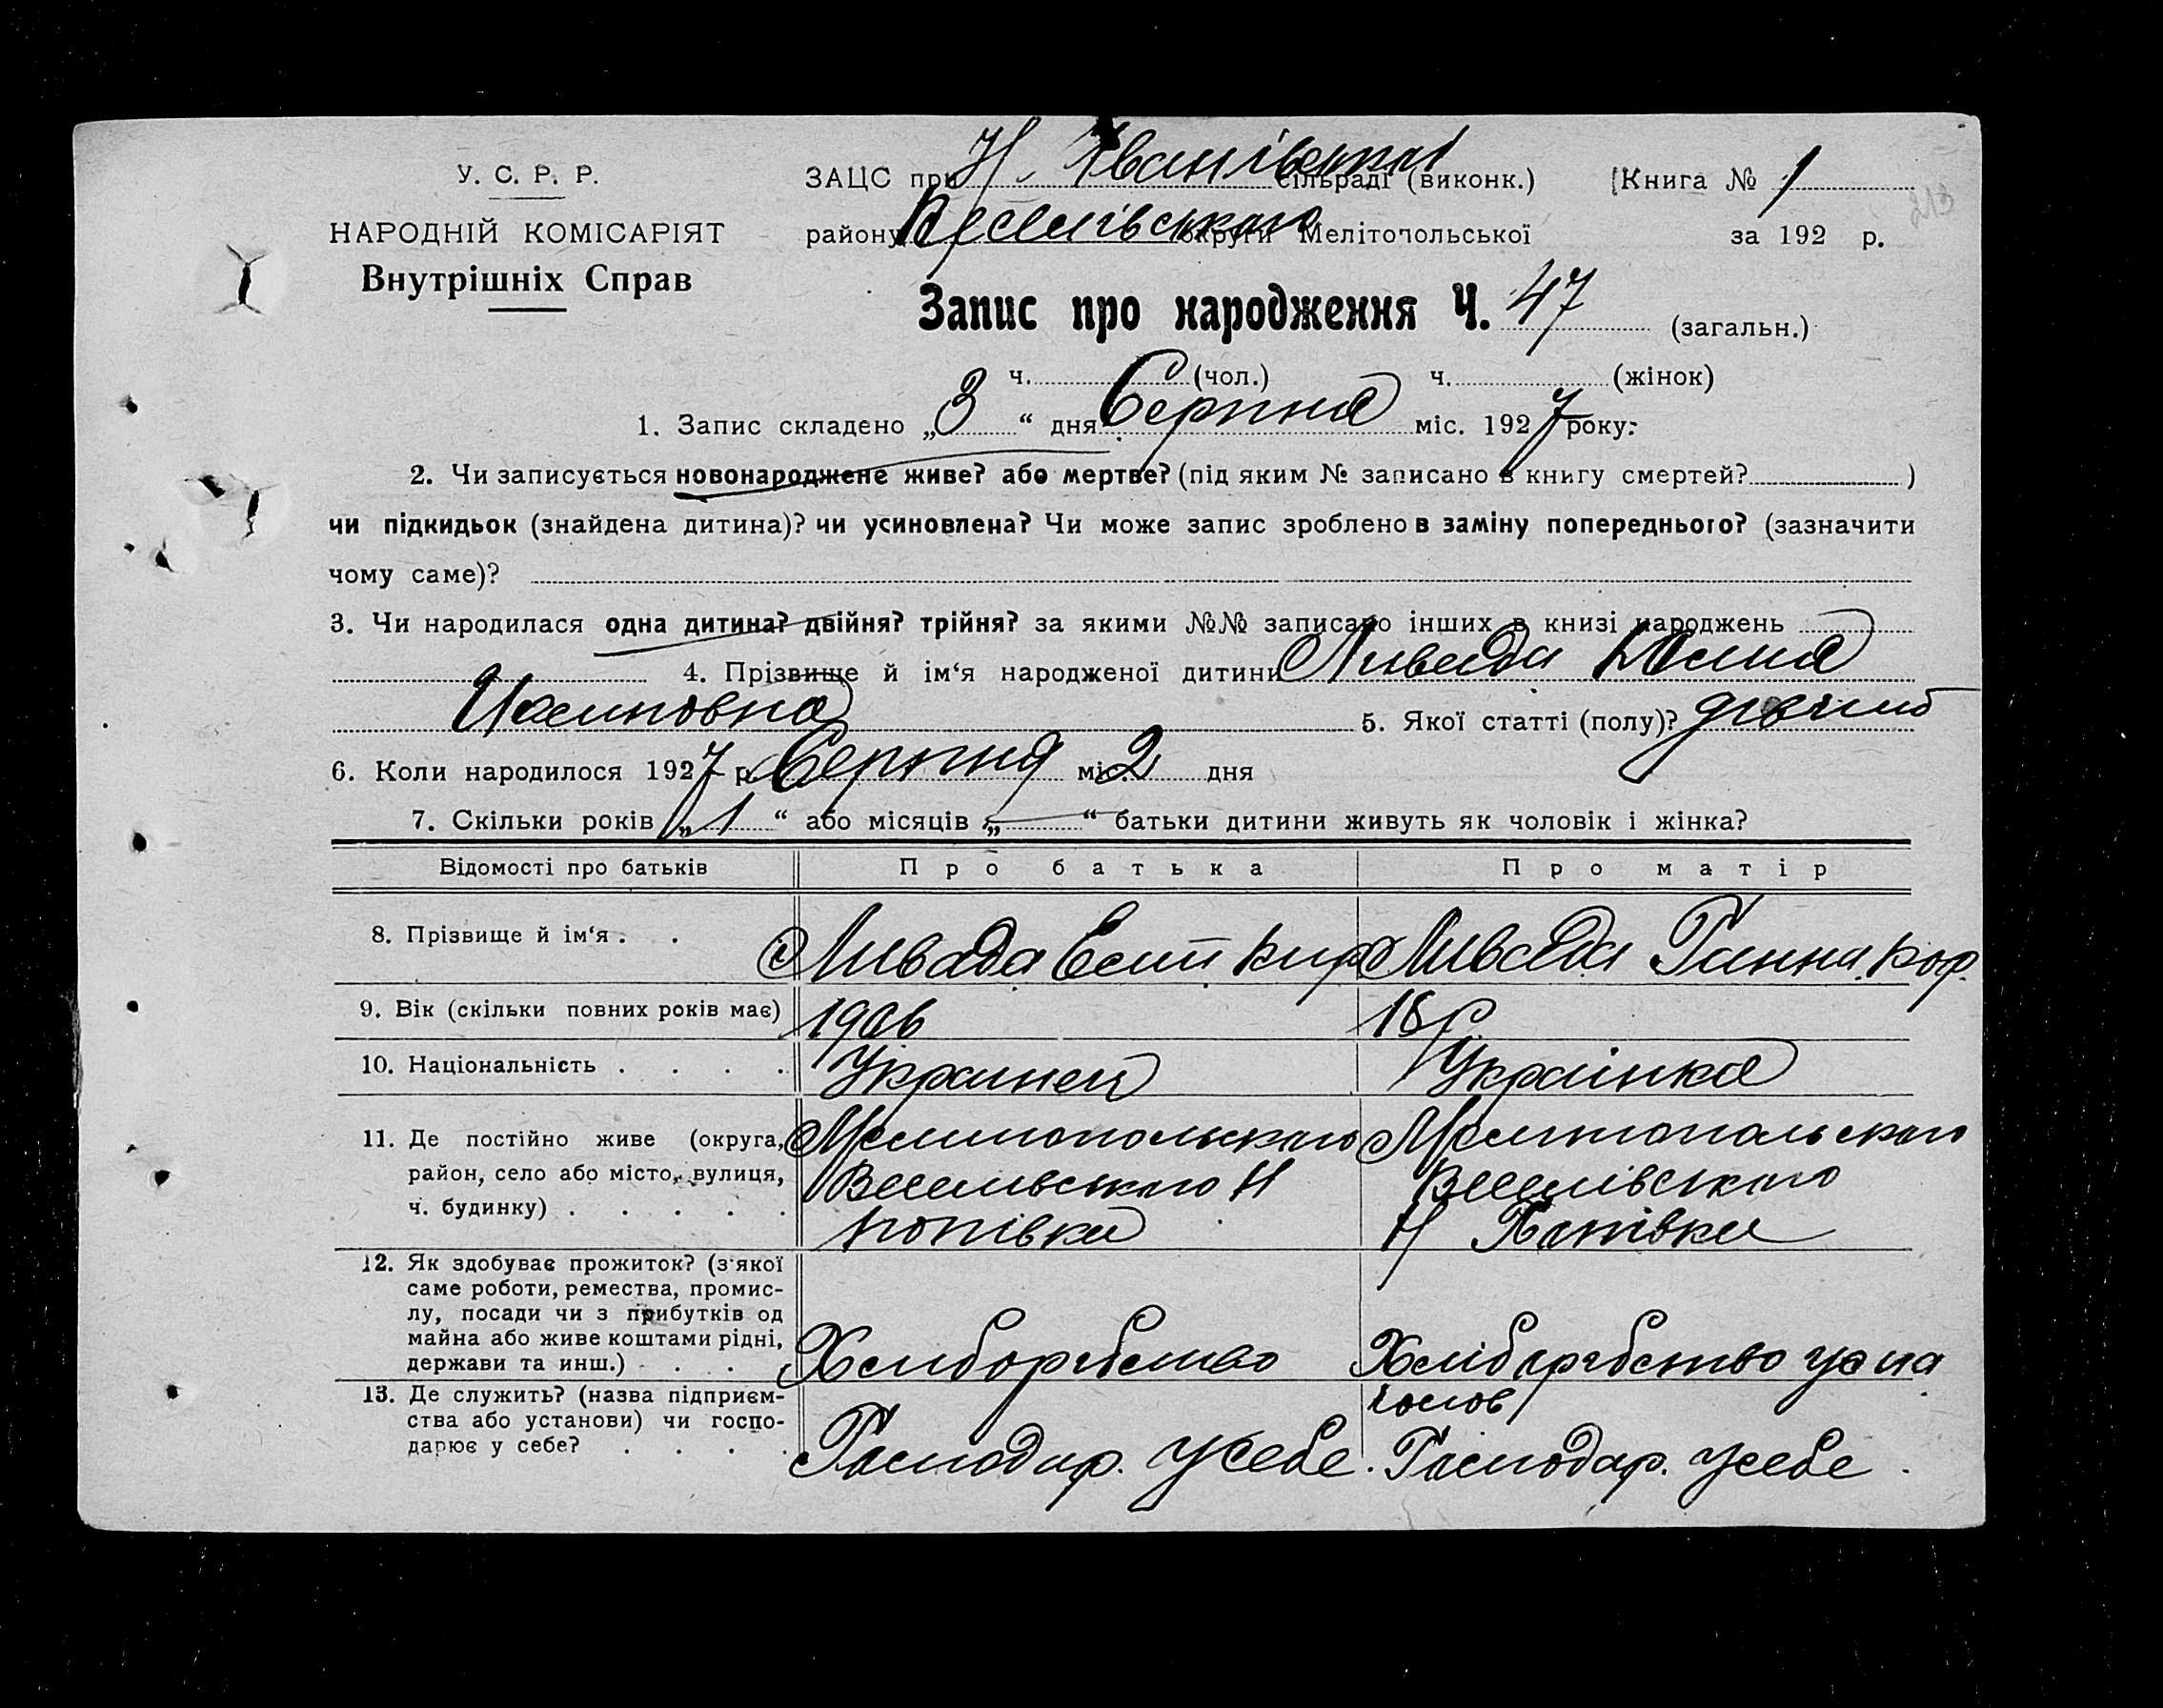 У. С. Р. Р.
НАРОДНІЙ КОМІСАРІЯТ
Внутрішніх Справ
ЗАЦС при Н. Іванівськ сільраді (виконк.) Книга № 1
213
району Веселівського округи Мелітопольської за 192 р.
Запис про народження Ч. 47 (загальн.)
ч. (чол.) ч. (жінок)
1. Запис складено „3“ дня Серпня міс. 1927 року:
2. Чи записується новонароджене живе? або мертве? (під яким № записано в книгу смертей? )
чи підкидьок (знайдена дитина)? чи усиновлена? Чи може запис зроблено в заміну попереднього? (зазначити
чому саме)?
3. Чи народилася одна дитина? двійня? трійня? за якими №№ записано інших в книзі народжень
4. Прізвище й ім‘я народженої дитини Ливада
5. Якої статті (полу)?
6. Коли народилося 1927 р. Серпня міс. 2 дня
7. Скільки років „1“ або місяців „—“ батьки дитини живуть як чоловік і жінка?
Відомості про батьків Про батька Про матір
8. Прізвище й ім‘я . . Ливада Есип Кир Ливада Ганна Кор.
9. Вік (скільки повних років має) 1906 18 р
10. Національність . . . . Украинец Українка
11. Де постійно живе (округа, Мелитопольского Мелітопольского
район, село або місто, вулиця, Веселивського Н Веселівського
ч. будинку) . . . . . Попівка Н Попівка
12. Як здобуває прожиток? (з‘якої
саме роботи, ремества, промис-
лу, посади чи з прибутків од
майна або живе коштами рідні,
держави та инш.) . . . Хлиборобство Хліборобство
13. Де служить? (назва підприєм-
ства або установи) чи госпо-
дарює у себе? . . . . Господар. усебе. Господар. усебе.